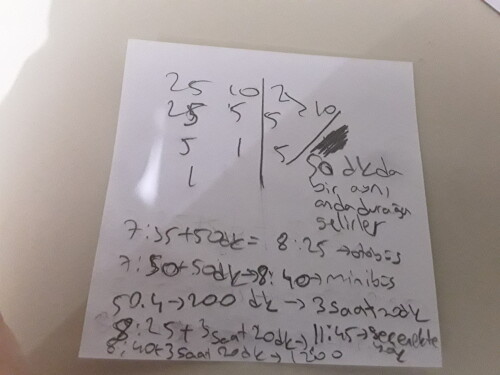 25 10 | 2
25 5 | 5 10
5 1 | 5
1
50 dkda
bir aynı
anda durağa
gelirler
7:35+50dk= 8:25→otobüs
7:50+50dk→8:40→minibüs
50.4→200 dk→3saat20dk
8:25+3saat20dk→11:45→seçenekte yok
8:40+3saat20dk→12:00